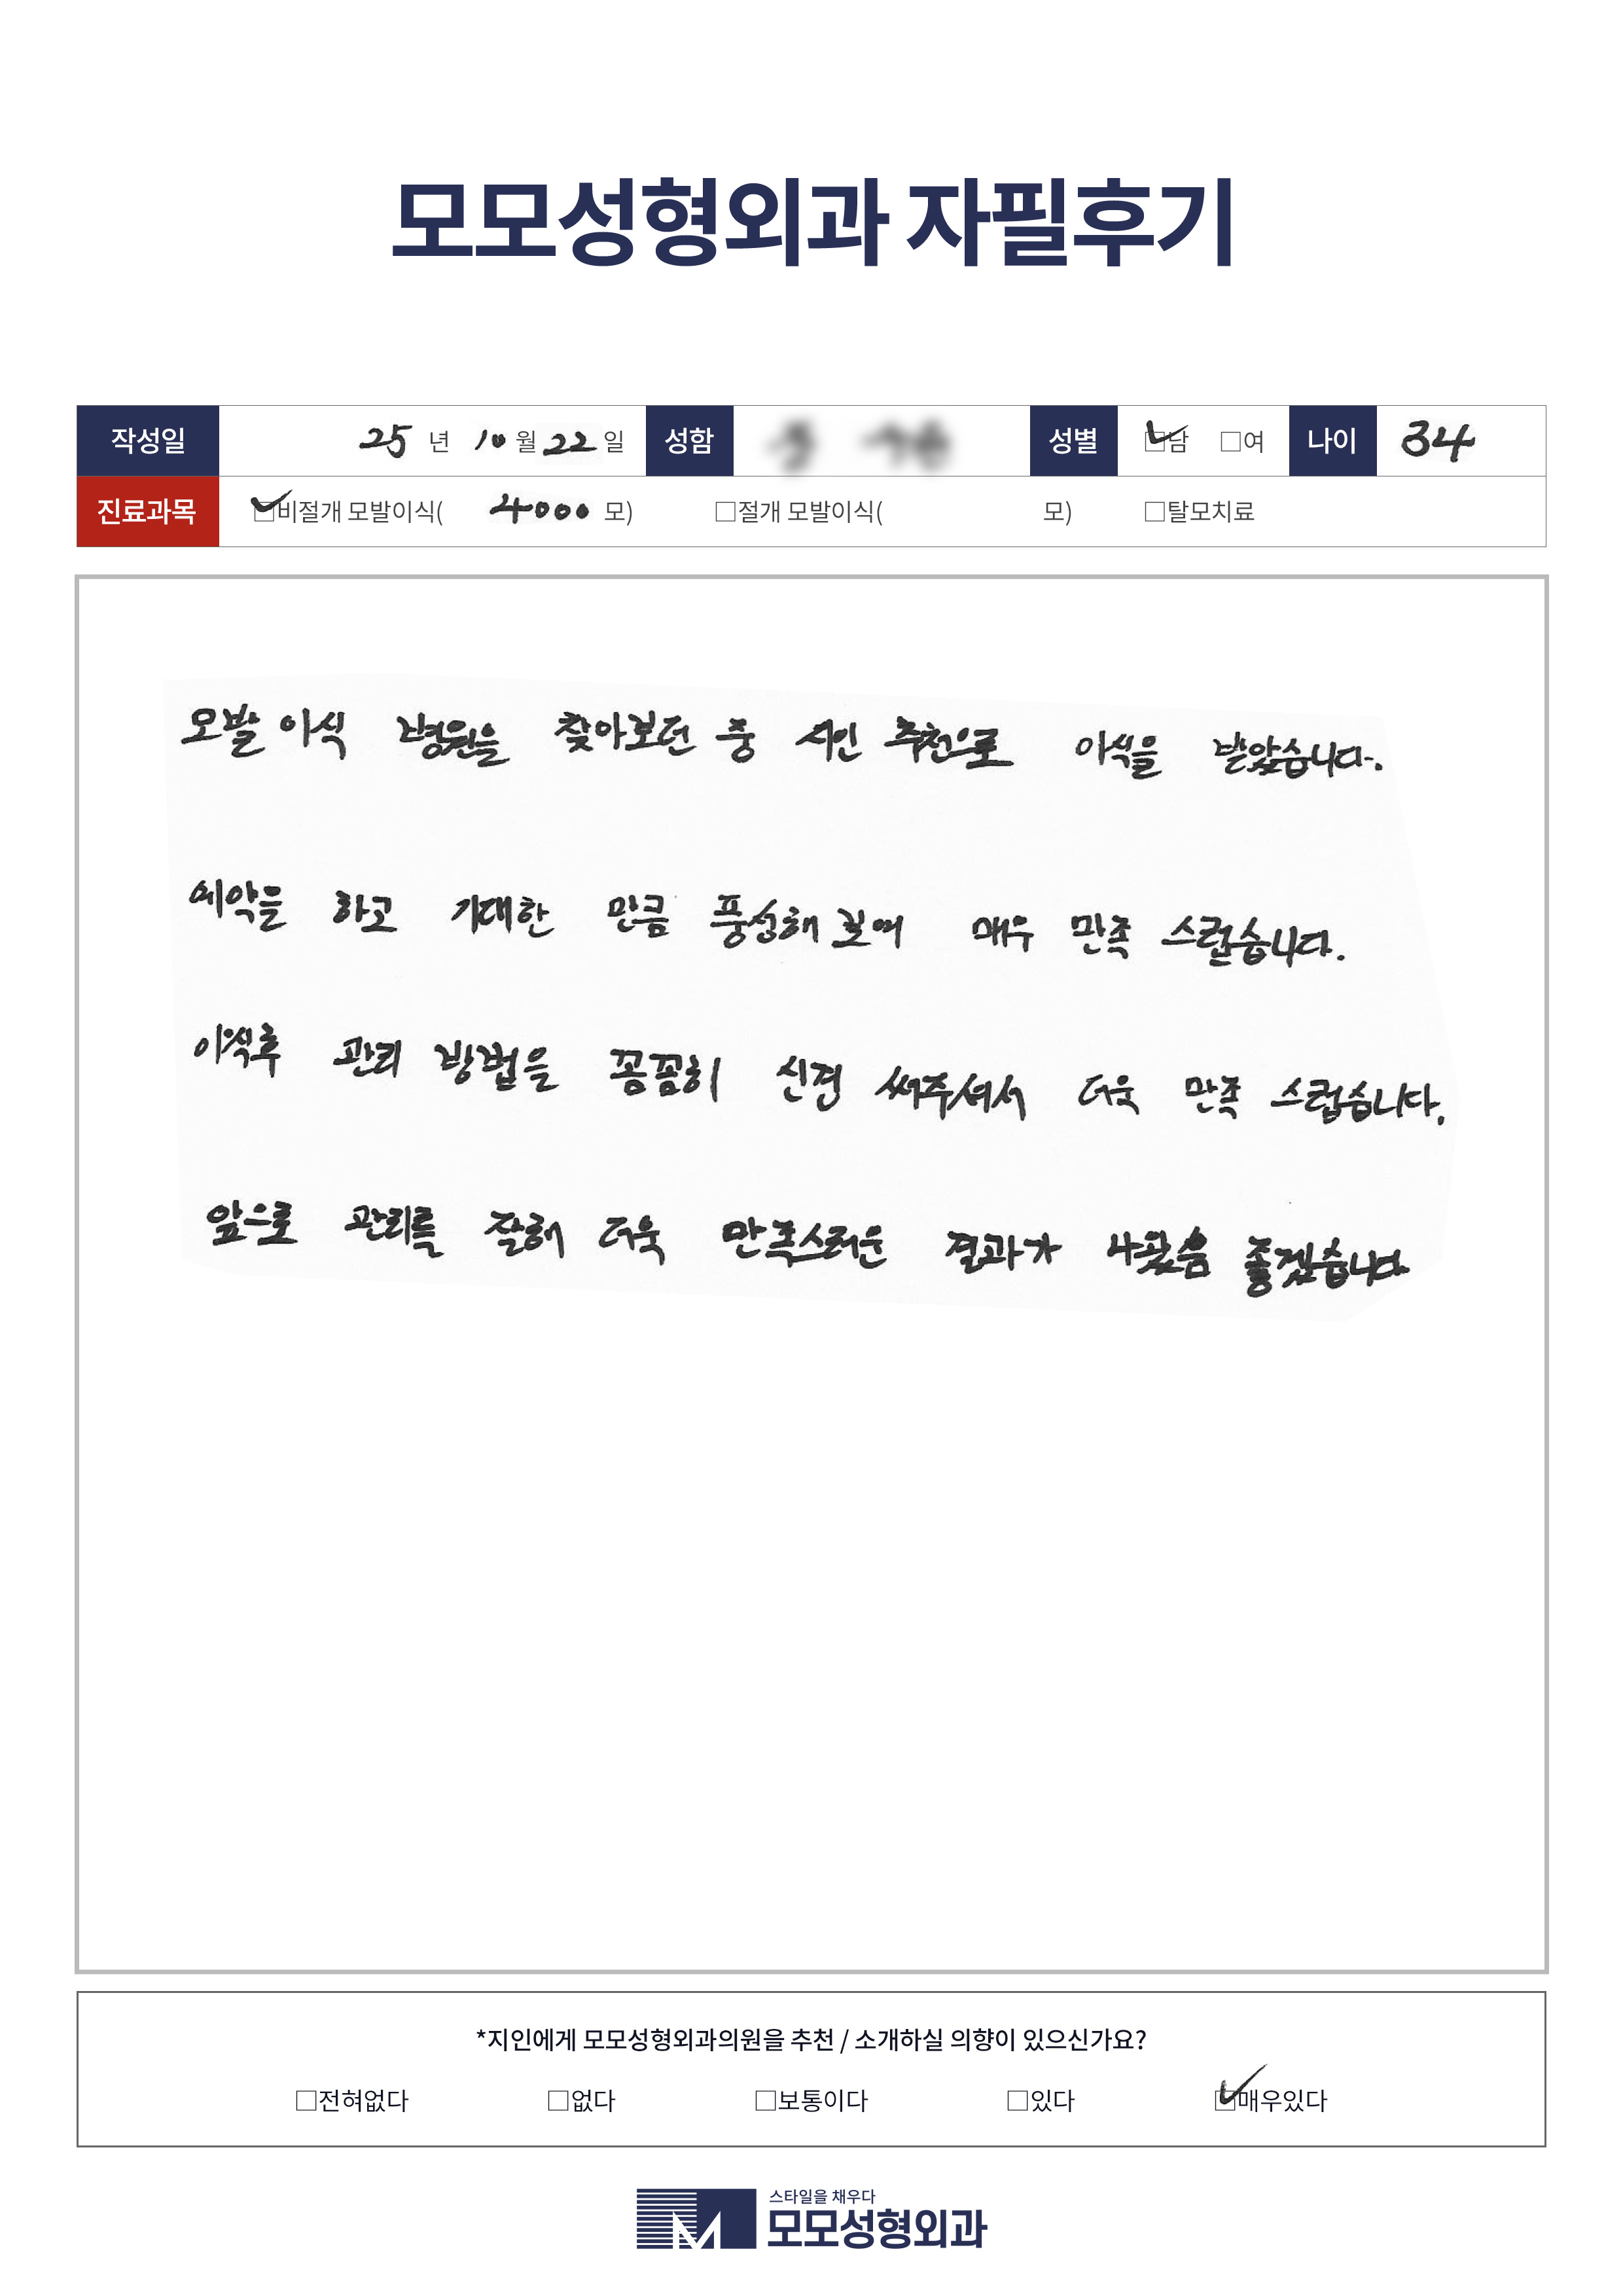 모모성형외과 자필후기
작성일 25 년 10 월 22 일 성함 성별 남 여 나이 34
진료과목 비절개 모발이식( 4000 모) 절개 모발이식( 모) 탈모치료
모발 이식 병원을 찾아보던 중 지인 추천으로 이식을 받았습니다.
예약을 하고 기대한 만큼 풍성해 보여 매우 만족 스럽습니다.
이식후 관리 방법을 꼼꼼히 신경 써주셔서 더욱 만족 스럽습니다.
앞으로 관리를 잘해 더욱 만족스러운 결과가 나왔음 좋겠습니다
*지인에게 모모성형외과의원을 추천 / 소개하실 의향이 있으신가요?
전혀없다 없다 보통이다 있다 매우있다
스타일을 채우다
모모성형외과